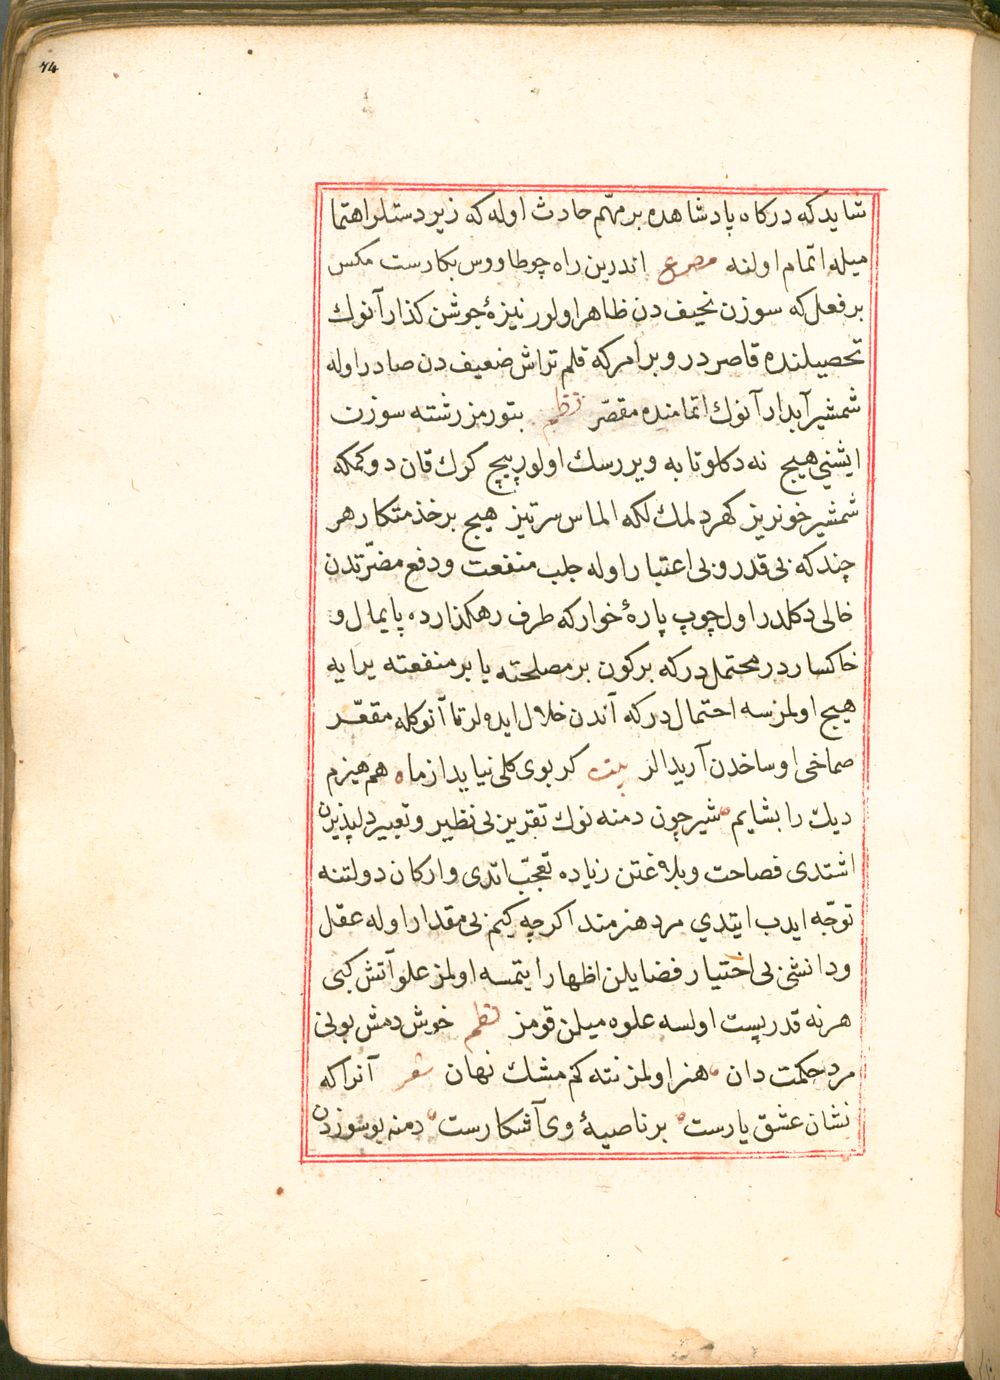 74
شاید که درکاه پادشاهده بر مهّم حادث اوله که زیردستلر اهتما
میله اتمام اولنه مصرع اندرین راه چو طاووس بکارست مکس
بر فعل که سوزن نحیف دن ظاهر اولور نیزۀ جوشن کذار آنوك
تحصیلنده قاصردر و بر امر که قلم تراش ضعیف دن صادر اوله
شمشیر آبدار آنوك اتمامنده مقصّر نظم بتورمز رشته سوزن
ایشنی هیچ نه دکلو تابه ویررسك اولور پیچ کرك قان دوکمکه
شمشیر خونریز کهر دلمك لکه الماس سرتیز هیچ بر خذمتکار هر
چند که بی قدر و بی اعتبار اوله جلب منفعت و دفع مضرّتدن
خالی دکلدر اول چوپ پارۀ خوار که طرف رهکذارده پایمال و
خاکساردر محتملدر که بر کون بر مصلحته یا بر منفعته یرایه
هیچ اولمزسه احتمالدر که آندن خلال ایده‌لر تا آنوکله مقعّر
صماخی اوساخدن آریدالر بیت کر بوی کلی نیاید از ما هم هیزم
دیك را بشایم شیر چون دمنه نوك تقریر بی نظیر و تعبیر دلپذیرن
اشتدی فصاحت و بلاغتن زیاده تعجّب اتدی و ارکان دولتنه
توجّه ایدب ایتدي مرد هنرمند اکرچه کیم بی مقدار اوله عقل
و دانشی بی اختیار فضایلن اظهار ایتمسه اولمز علو آتش کبی
هر نه قدر پست اولسه علوه میلن قومز نظم خوش دمش بونی
مرد حکمت دان هنر اولمز نته کم مشك نهان شعر آنرا که
نشان عشق یارست بر ناصیۀ وی آشکارست دمنه بو سوزدن